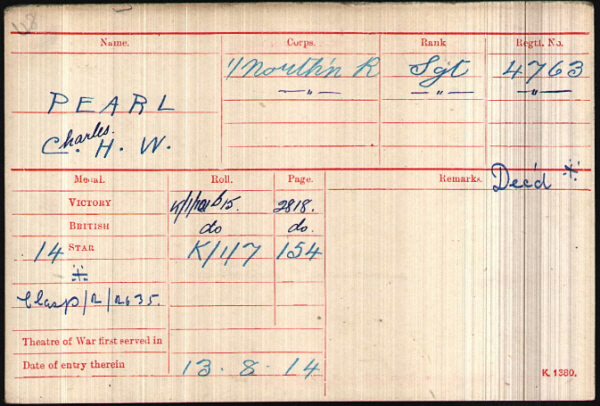 Name. Corps. Rank Regtl. No.
1/North'n R Sgt 4763
—"— —"— —"—
PEARL
Charles.
C. H. W.
Medal. Roll. Page. Remarks. Dec'd *
VICTORY 2818.
BRITISH do do.
14 STAR K/1/7 154
*
Clasp/2/2635.
Theatre of War first served in
Date of entry therein 13-8-14
K. 1380.